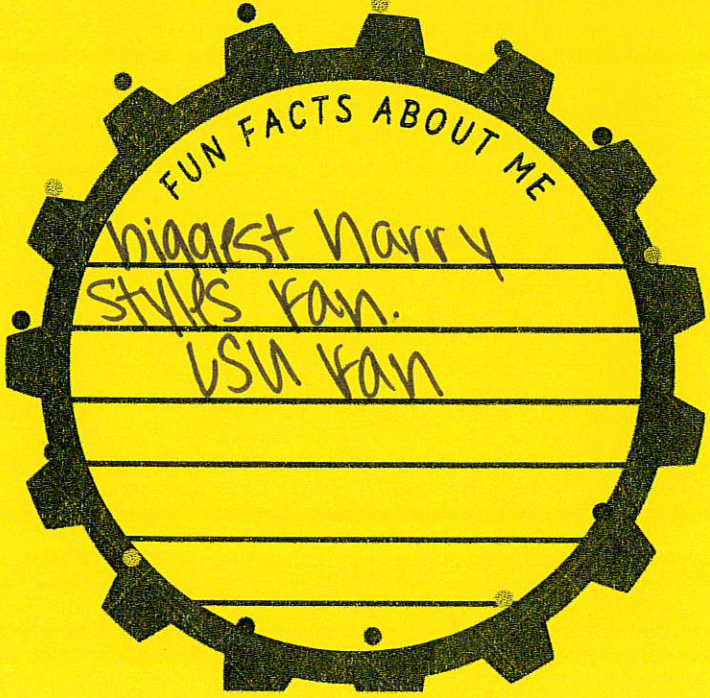 FUN FACTS ABOUT ME
biggest harry
styles fan.
LSU fan